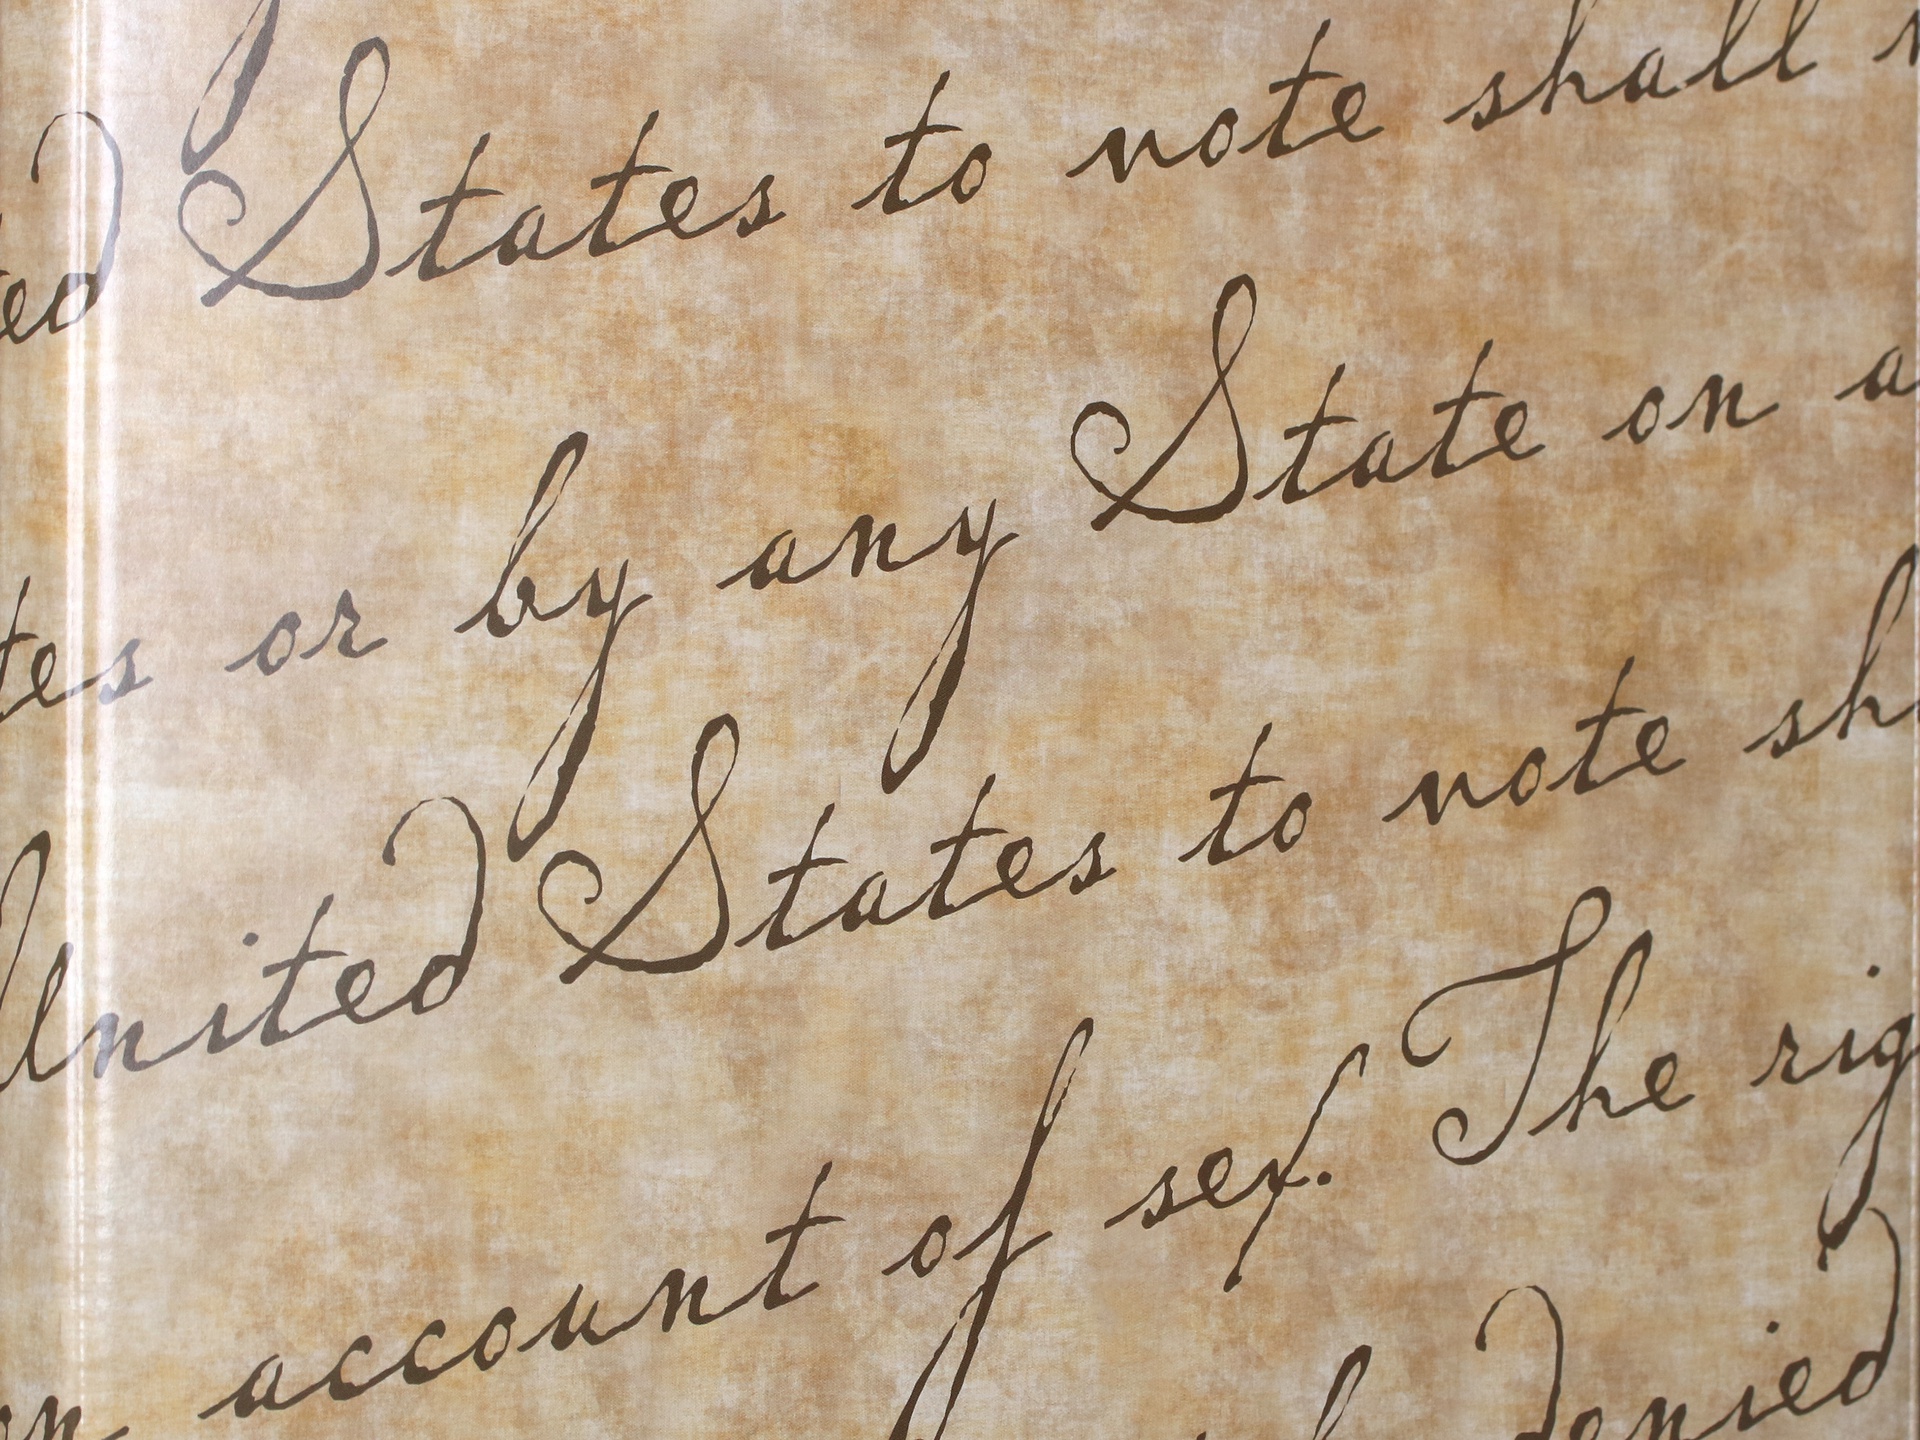 ed States to vote shall
tes or by any State on a
United States to vote sh
on account of sex. The rig
denied